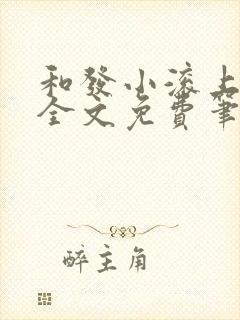 和發小滾上
全文免費筆
醉主角